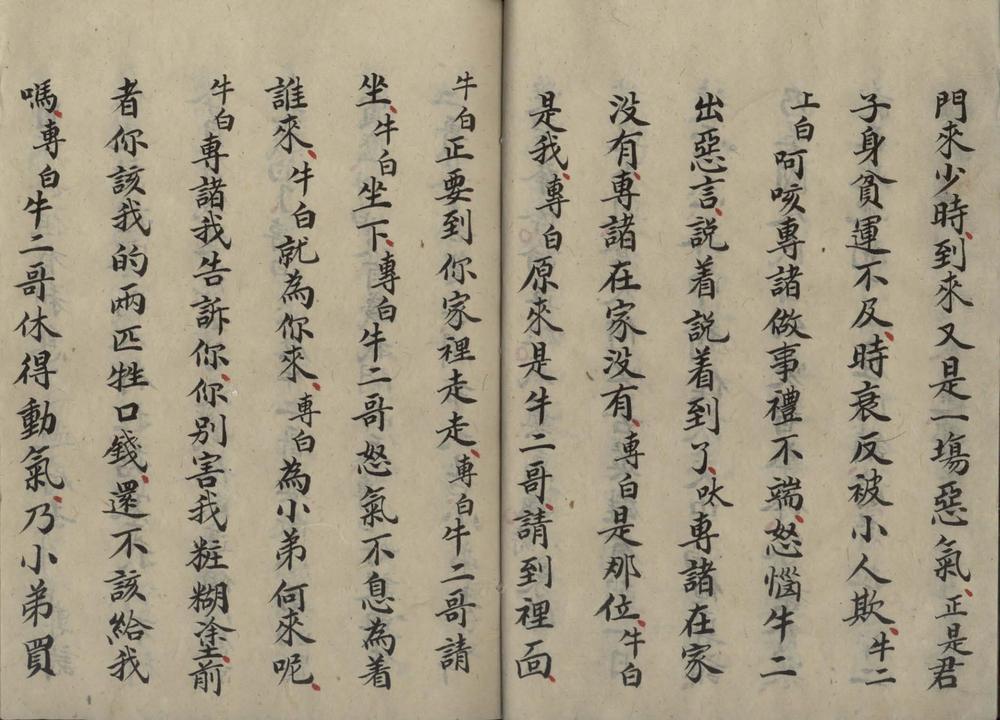 門來少時、到來又是一塲惡氣、正是君
子身貧運不及、時衰反被小人欺、牛二
上白呵咳專諸做事禮不端、怒惱牛二
出惡言、說着說着到了、呔專諸在家
没有、專諸在家没有、專白是那位、牛白
是我、專白原來是牛二哥、請到裡面、
牛白正要到你家裡走走、專白牛二哥請
坐、牛白坐下、專白牛二哥怒氣不息為着
誰來、牛白就為你來、專白為小弟何來呢、
牛白專諸我告訴你、你別害我粧糊塗、前
者你該我的兩匹牲口錢、還不該給我
嗎、專白牛二哥休得動氣、乃小弟買